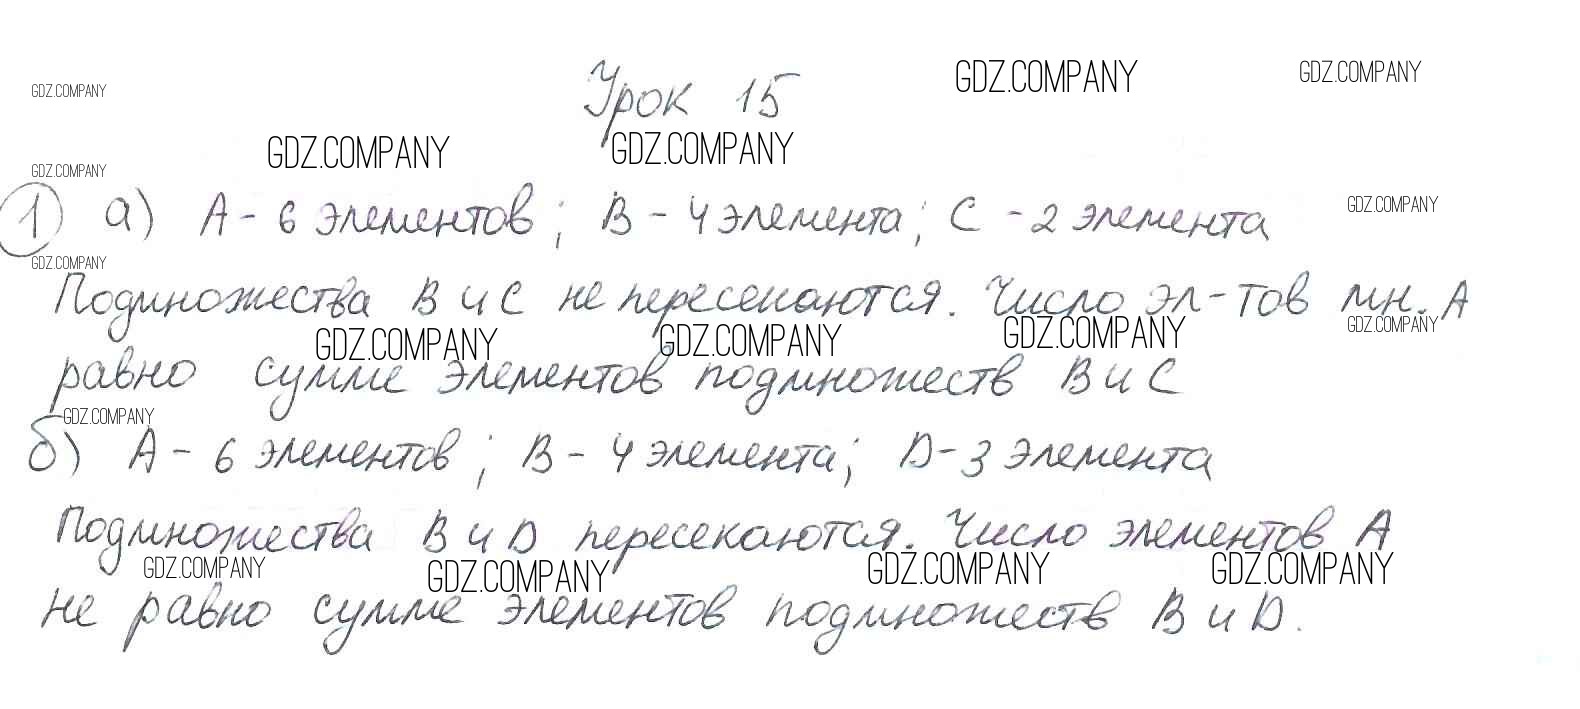 Урок 15
GDZ.COMPANY GDZ.COMPANY GDZ.COMPANY
GDZ.COMPANY GDZ.COMPANY
GDZ.COMPANY
1 а) А - 6 элементов; В - 4 элемента; С - 2 элемента
GDZ.COMPANY
GDZ.COMPANY
Подмножества В и С не пересекаются. Число эл-тов мн. А
GDZ.COMPANY GDZ.COMPANY GDZ.COMPANY GDZ.COMPANY
равно сумме элементов подмножеств В и С
GDZ.COMPANY
б) А - 6 элементов; В - 4 элемента; D - 3 элемента
Подмножества В и D пересекаются. Число элементов А
GDZ.COMPANY GDZ.COMPANY GDZ.COMPANY GDZ.COMPANY
не равно сумме элементов подмножеств В и D.